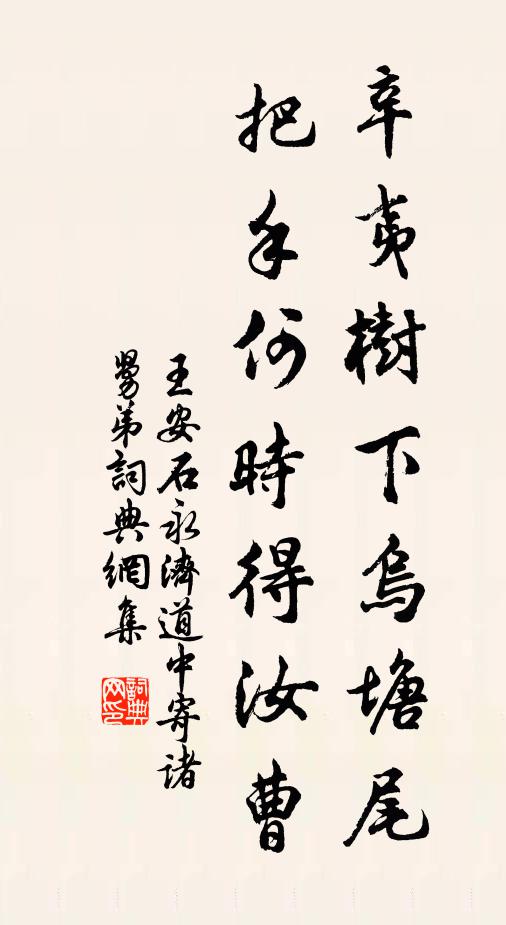 辛夷樹下烏塘尾
把手何時得汝曹
王安石永濟道中寄諸
舅弟詞典網集
詞典
网印